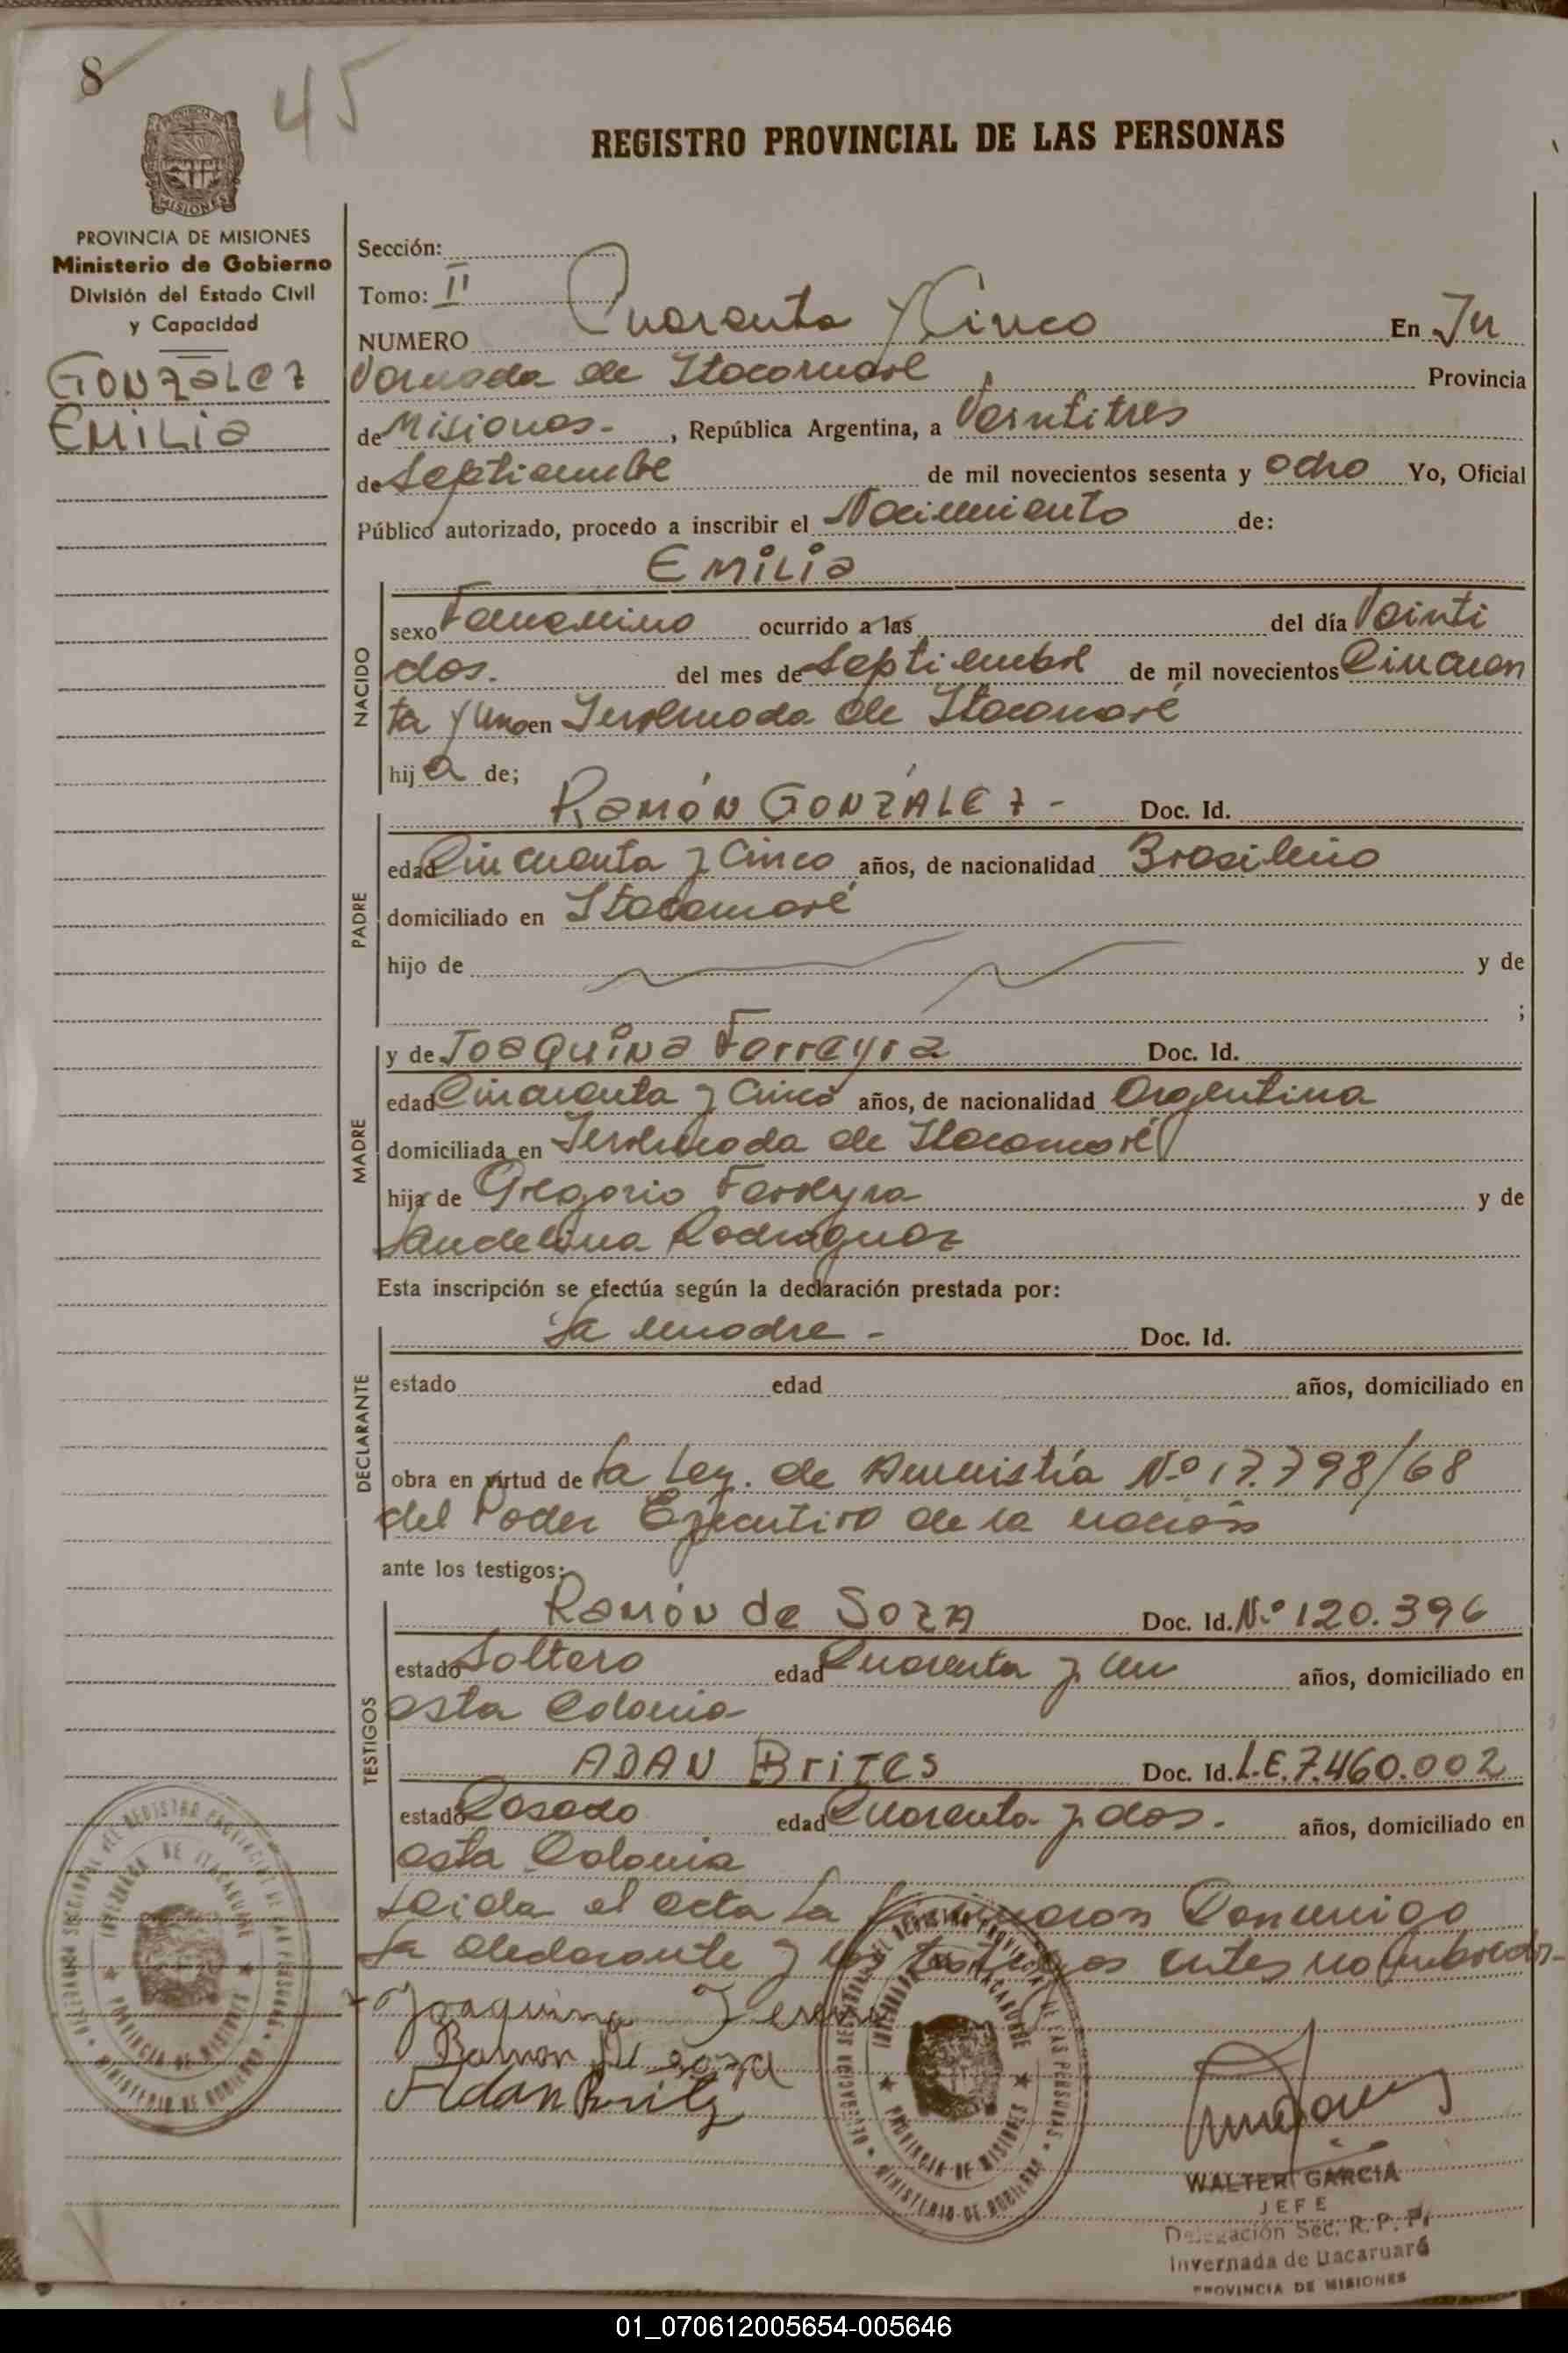 8
45
REGISTRO PROVINCIAL DE LAS PERSONAS
MISIONES
PROVINCIA DE MISIONES
Ministerio de Gobierno
División del Estado Civil
y Capacidad
GONZALEZ
EMILIA
Sección:
Tomo: II
NUMERO Cuarenta y Cinco En In
vernada de Itacaruaré Provincia
de Misiones.- , República Argentina, a Veintitres
de Septiembre de mil novecientos sesenta y ocho Yo, Oficial
Público autorizado, procedo a inscribir el Nacimiento de:
NACIDO
EMILIA
sexo Femenino ocurrido a las del día Veinti
dos. del mes de Septiembre de mil novecientos Cincuen
ta y Uno en Invernada de Itacaruaré
hija de;
PADRE
RAMÓN GONZÁLEZ - Doc. Id.
edad Cincuenta y Cinco años, de nacionalidad Brasileño
domiciliado en Itacaruaré
hijo de y de
;
MADRE
y de Joaquina Ferreyra Doc. Id.
edad Cincuenta y Cinco años, de nacionalidad Argentina
domiciliada en Invernada de Itacaruaré
hija de Gregorio Ferreyra y de
Sandelina Rodriguez
Esta inscripción se efectúa según la declaración prestada por:
DECLARANTE
La madre - Doc. Id.
estado edad años, domiciliado en
obra en virtud de la Ley. de Amnistía Nº 17.798/68
del Poder Ejecutivo de la nación
ante los testigos:
TESTIGOS
Ramón de SOZA Doc. Id. Nº 120.396
estado Soltero edad Cuarenta y un años, domiciliado en
esta Colonia
ADAN Brites Doc. Id. L.E.7.460.002
estado Casado edad Cuarenta y dos. años, domiciliado en
esta Colonia
Leida el acta La firmaron Conmigo
La declarante y los testigos antes nombrados-
Joaquina
Ramon de soza
Adan Brites
WALTER GARCIA
JEFE
Delegación Sec. R. P. P.
Invernada de Itacaruaré
PROVINCIA DE MISIONES
01_070612005654-005646